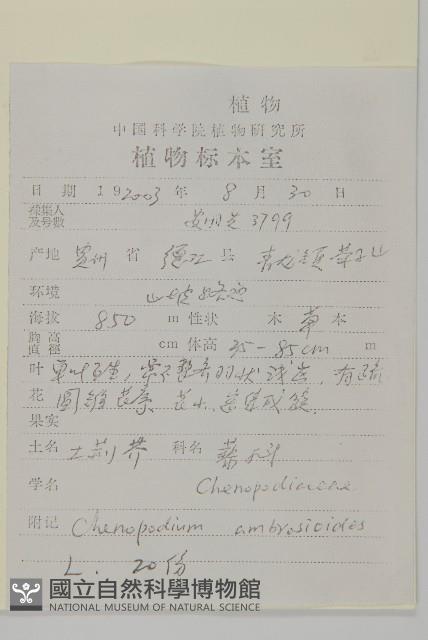 植物
中国科学院植物研究所
植物标本室
日期 192003年 8月30日
採集人
及号数 安明先 3799
产地 贵州省 德江县 青龙镇
环境 山坡路边
海拔 850 m 性状 木 草本
胸高
直徑 cm 体高 35-85cm m
叶 单叶互生,
花 圆锥花序, 花小,
果实
土名 土荆芥 科名 藜科
学名 Chenopodiaceae
附记 Chenopodium ambrosioides
L. 20份
國立自然科學博物館
NATIONAL MUSEUM OF NATURAL SCIENCE